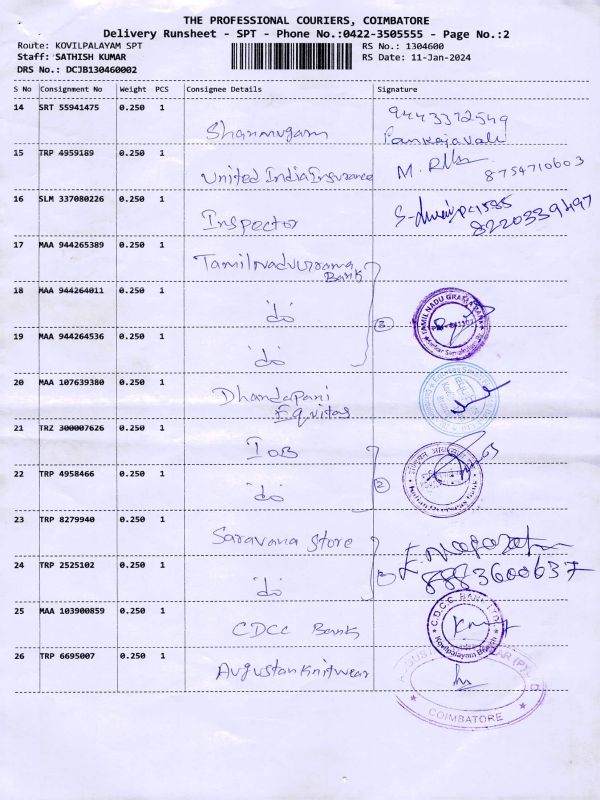 THE PROFESSIONAL COURIERS, COIMBATORE
Delivery Runsheet - SPT - Phone No.:0422-3505555 - Page No.:2
Route: KOVILPALAYAM SPT
RS No.: 1304600
Staff: SATHISH KUMAR
RS Date: 11-Jan-2024
DRS No.: DCJB130460002
S No Consignment No Weight PCS Consignee Details Signature
14 SRT 55941475 0.250 1
9443372549
Shanmugam Pankajavali
15 TRP 4959189 0.250 1
United India Insurance M. 8754710603
16 SLM 337080226 0.250 1
Inspector
17 MAA 944265389 0.250 1
Tamilnadu Grama
Bank
18 MAA 944264011 0.250 1
do 3
TAMIL NADU GRAMA BANK
19 MAA 944264536 0.250 1
do
20 MAA 107639380 0.250 1
Dhandapani
Equitas
21 TRZ 300007626 0.250 1
IOB
22 TRP 4958466 0.250 1
do 2
Indian Overseas Bank
23 TRP 8279940 0.250 1
Saravana Store
24 TRP 2525102 0.250 1
do 8883600637
25 MAA 103900859 0.250 1
CDCC Bank
C.D.C.C. BANK LTD.
Kovilpalayam Branch
26 TRP 6695007 0.250 1
Augustan Knitwear
COIMBATORE